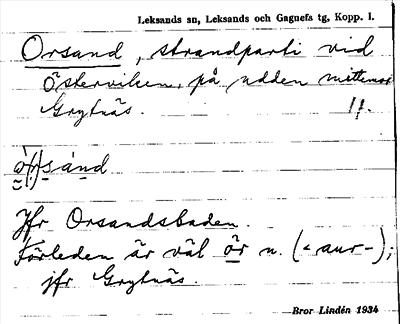 Leksands sn, Leksands och Gagnefs tg, Kopp. l.
Orsand, strandparti vid
Österviken, på udden mittemot
Grytnäs. 1 f.
Jfr Orsandsbaden.
Förleden är väl ör n. (< aur-);
jfr Grytnäs.
Bror Lindén 1934